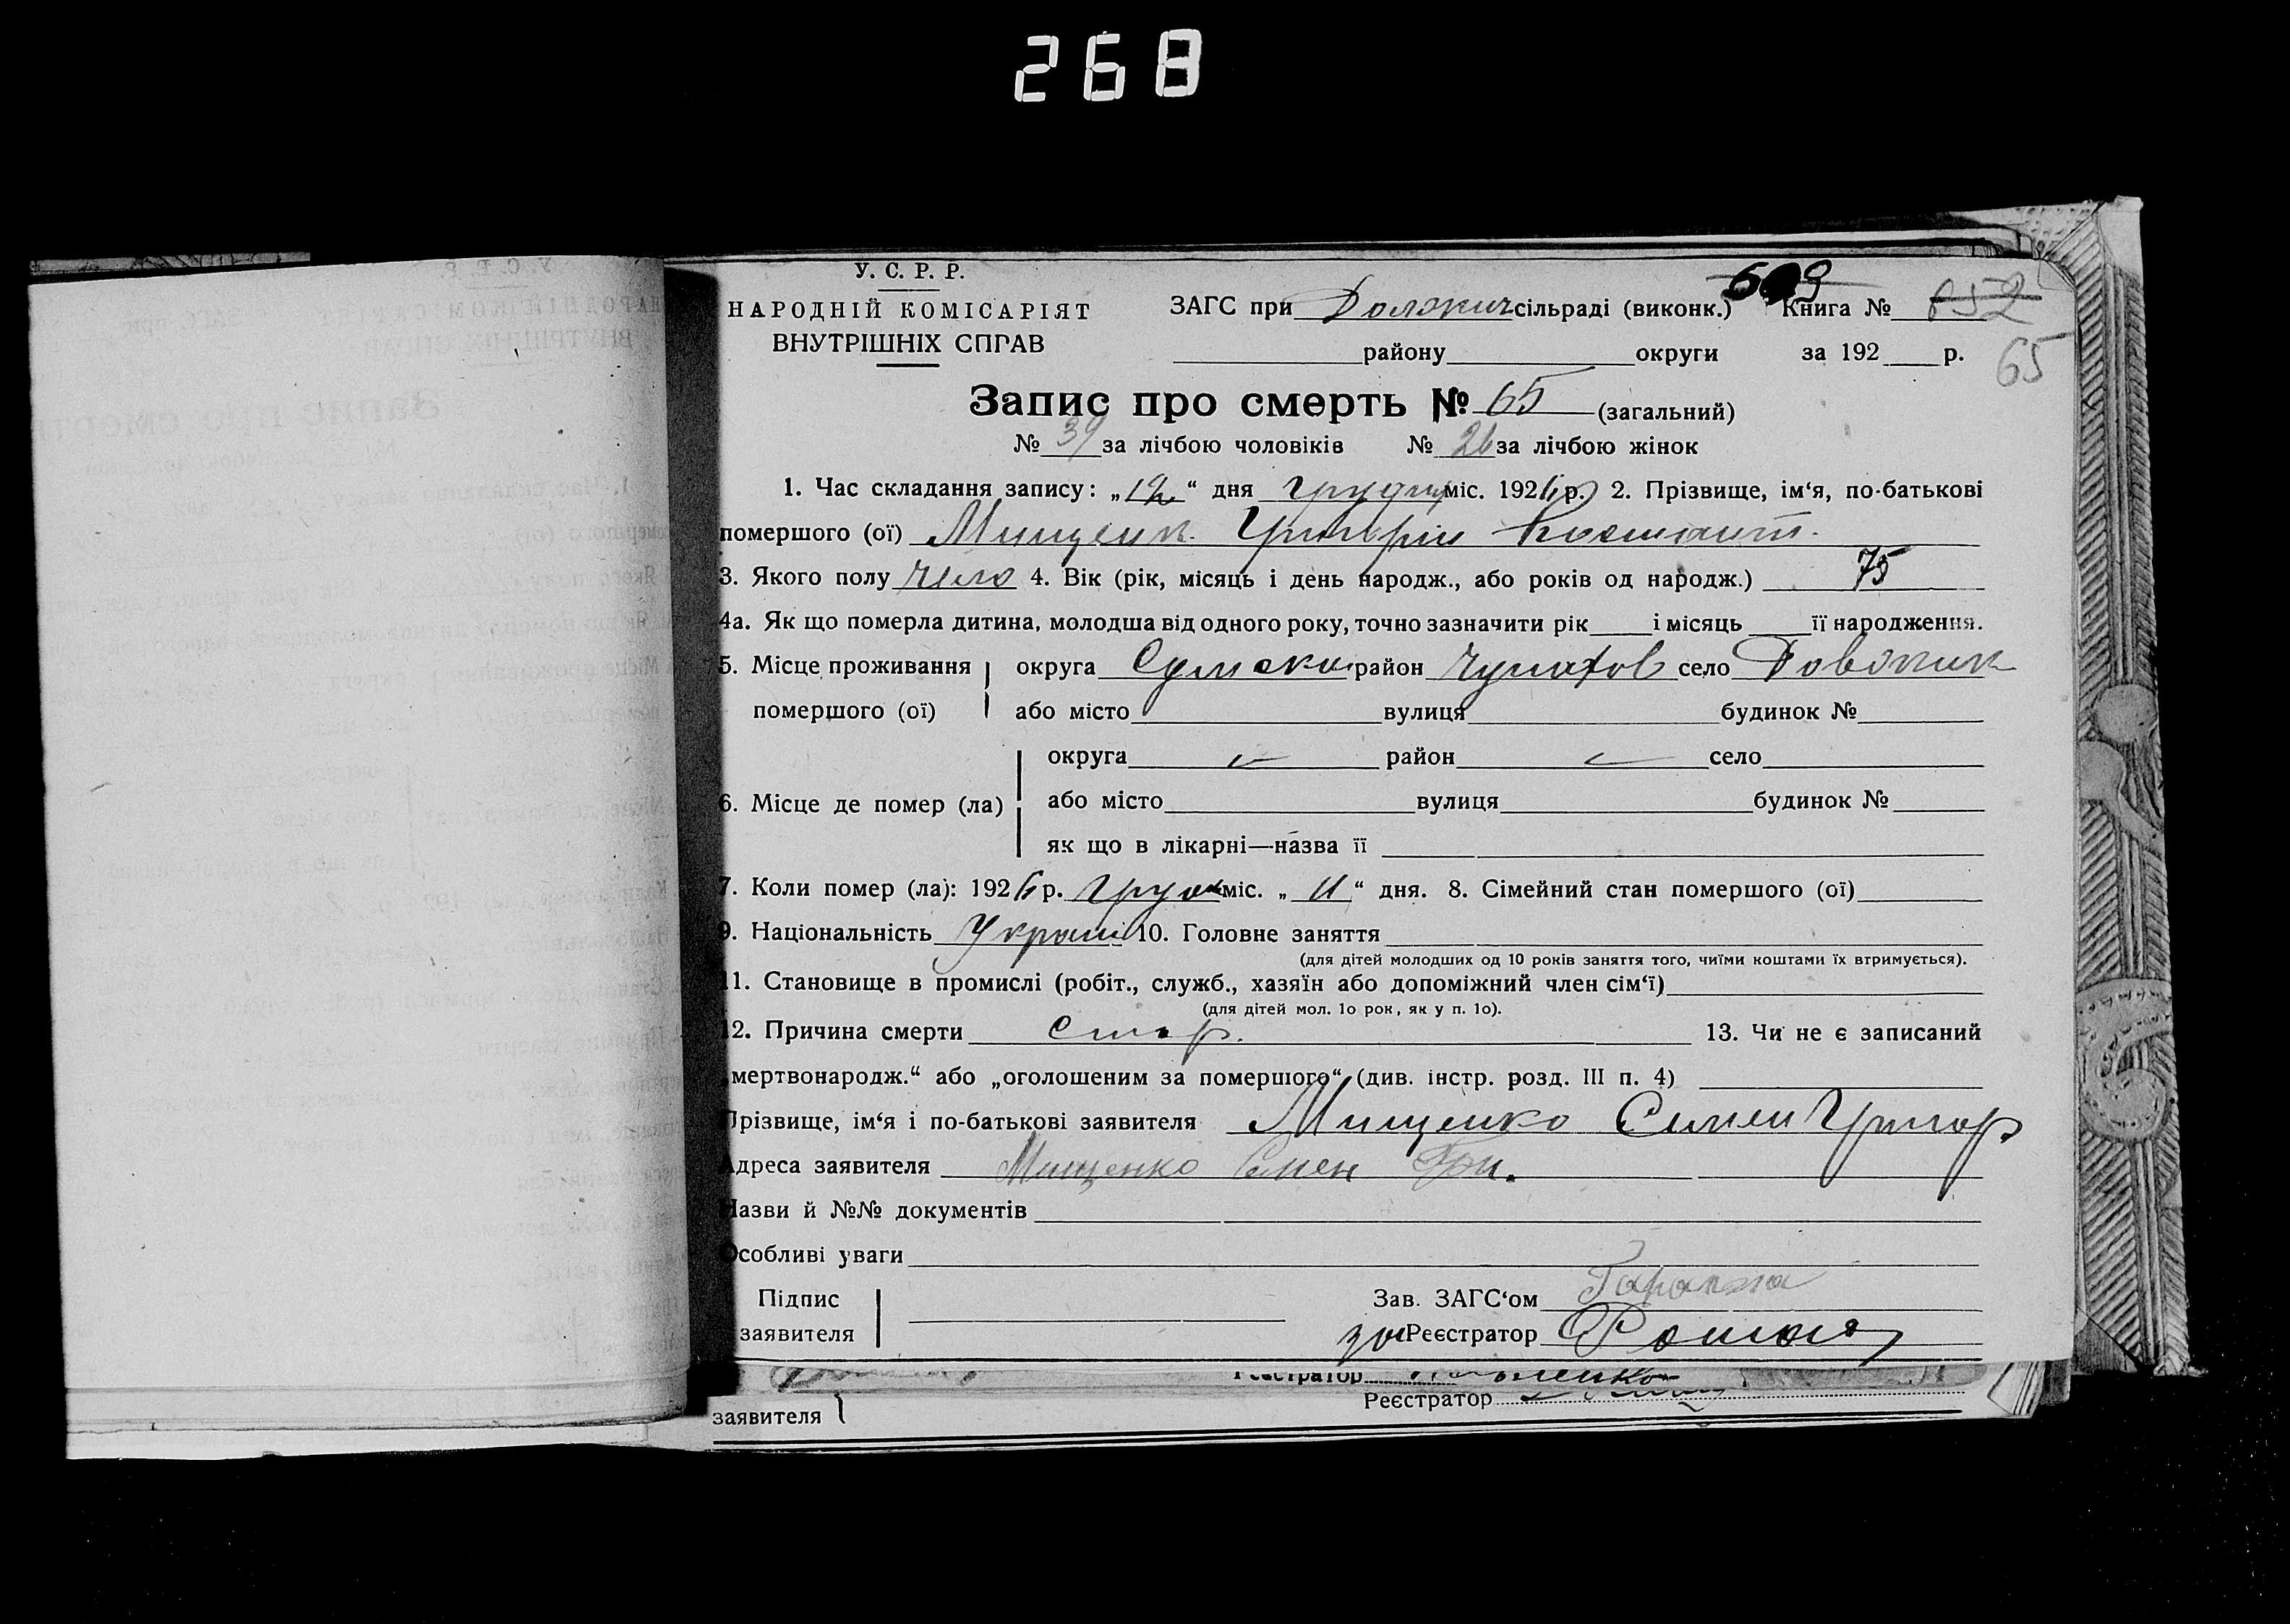 268
У. С. Р. Р.
НАРОДНІЙ КОМІСАРІЯТ
ВНУТРІШНІХ СПРАВ
ЗАГС при сільраді (виконк.) Книга № 652
району округи за 192 р. 65
Запис про смерть № 65 (загальний)
№ 39 за лічбою чоловіків № 26 за лічбою жінок
1. Час складання запису: „12“ дня грудня міс. 1926 р. 2. Прізвище, ім‘я, по-батькові
помершого (ої) Мищенк. Григорій Констант.
3. Якого полу чоло 4. Вік (рік, місяць і день народж., або років од народж.) 75
4а. Як що померла дитина, молодша від одного року, точно зазначити рік і місяць її народження.
5. Місце проживання округа Сумска район село
помершого (ої) або місто вулиця будинок №
округа район село
6. Місце де помер (ла) або місто вулиця будинок №
як що в лікарні—назва її
7. Коли помер (ла): 1926 р. міс. „11“ дня. 8. Сімейний стан помершого (ої)
9. Національність 10. Головне заняття
(для дітей молодших од 10 років заняття того, чиїми коштами їх втримується).
11. Становище в промислі (робіт., служб., хазяїн або допоміжний член сім‘ї)
(для дітей мол. 1о рок, як у п. 1о).
12. Причина смерти стар. 13. Чи не є записаний
„мертвонародж.“ або „оголошеним за помершого“ (див. інстр. розд. III п. 4)
Прізвище, ім‘я і по-батькові заявителя Мищенко Семен Григор
Адреса заявителя Мищенко Смен Гри.
Назви й №№ документів
Особливі уваги
Підпис Зав. ЗАГС‘ом
заявителя за Реєстратор
Реєстратор
заявителя Реєстратор